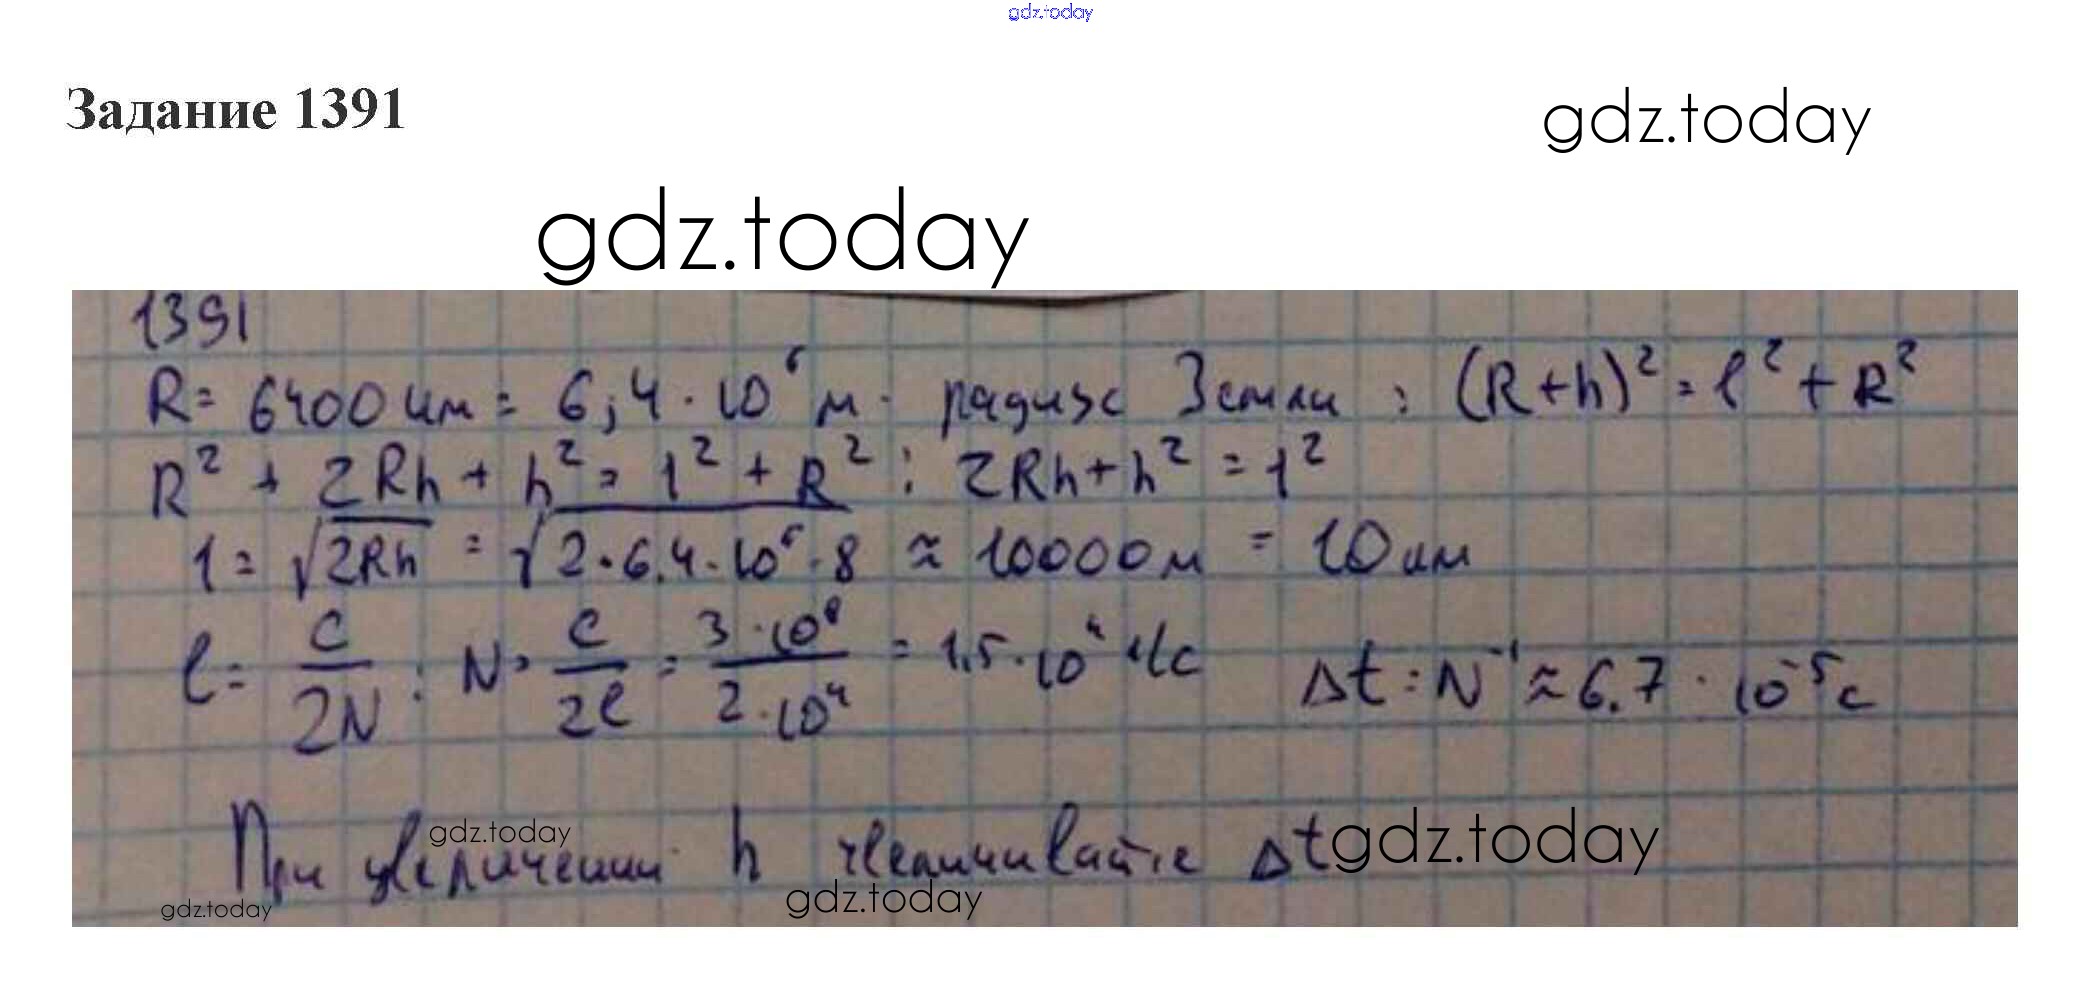 gdz.today
Задание 1391
gdz.today
gdz.today
1391
R = 6400 км = 6,4 · 10⁶ м - радиус Земли ; (R+h)² = l² + R²
R² + 2Rh + h² = l² + R² ; 2Rh + h² = l²
l = √2Rh = √2·6.4·10⁶·8 ≈ 10000 м = 10 км
l = c/2N ; N = c/2l = 3·10⁸/2·10⁴ = 1.5·10⁴ 1/с Δt = N⁻¹ ≈ 6.7 · 10⁻⁵ с
При увеличении h увеличивайте Δt
gdz.today
gdz.today
gdz.today
gdz.today